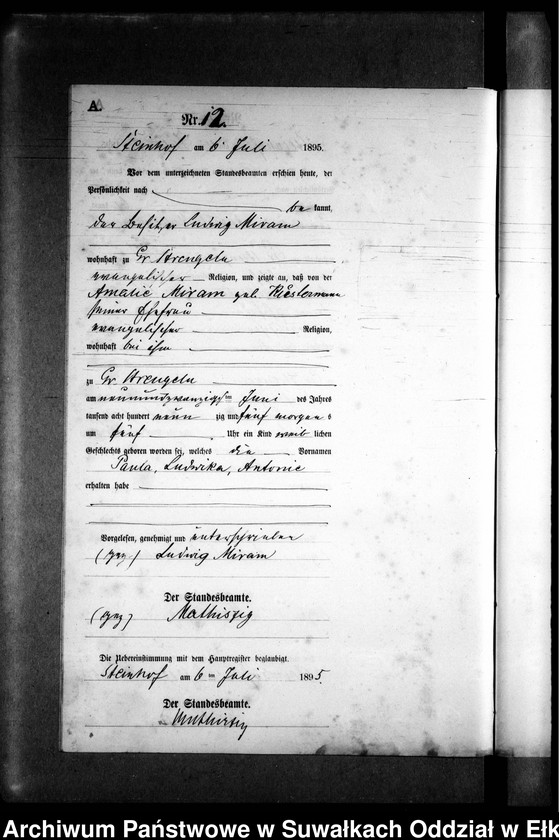 A.
Nr. 12.
Steinhof am 6 Juli 1895.
Vor dem unterzeichneten Standesbeamten erschien heute, der
Persönlichkeit nach
be kannt,
der Besitzer Ludwig Miram
wohnhaft zu Gr Strengeln
evangelischer Religion, und zeigte an, daß von der
Amalie Miram geb.
seiner Ehefrau
evangelischer Religion,
wohnhaft bei ihm
zu Gr Strengeln
am neunundzwanzigsten Juni des Jahres
tausend acht hundert neun zig und fünf morgens
um fünf Uhr ein Kind weib lichen
Geschlechts geboren worden sei, welches die Vornamen
Paula, Ludwika, Antonie
erhalten habe
Vorgelesen, genehmigt und unterschrieben
(gez.) Ludwig Miram
Der Standesbeamte.
(gez) Mathiszig
Die Uebereinstimmung mit dem Hauptregister beglaubigt.
Steinhof am 6 ten Juli 1895.
Der Standesbeamte.
Mathiszig
Archiwum Państwowe w Suwałkach Oddział w Ełk